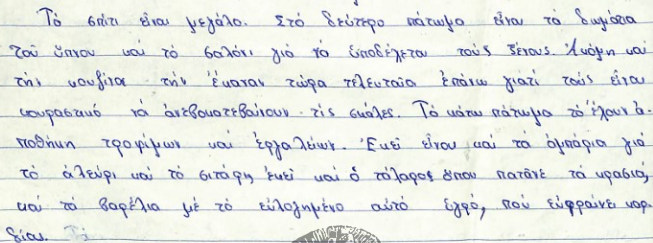 Τὸ σπίτι εἶναι μεγάλο. Στὸ δεύτερο πάτωμα εἶναι τὰ δωμάτια
τοῦ ὕπνου καὶ τὸ σαλόνι γιὰ νὰ ὑποδέχεται τοὺς ξένους. Ἀκόμη καὶ
τὴν κουζίνα τὴν ἔκαναν τώρα τελευταῖα ἐπάνω γιατὶ τοὺς εἶναι
κουραστικὸ νὰ ἀνεβοκατεβαίνουν τὶς σκάλες. Τὸ κάτω πάτωμα τὸ ἔχουν ἀ-
ποθήκη τροφίμων καὶ ἐργαλείων. Ἐκεῖ εἶναι καὶ τὰ ἀμπάρια γιὰ
τὸ ἀλεύρι καὶ τὸ σιτάρι, ἐκεῖ καὶ ὁ τάλαρος ὅπου πατᾶνε τὰ κρασιά,
καὶ τὰ βαρέλια μὲ τὸ εὐλογημένο αὐτὸ ὑγρό, ποὺ εὐφραίνει καρ-
δίαν.